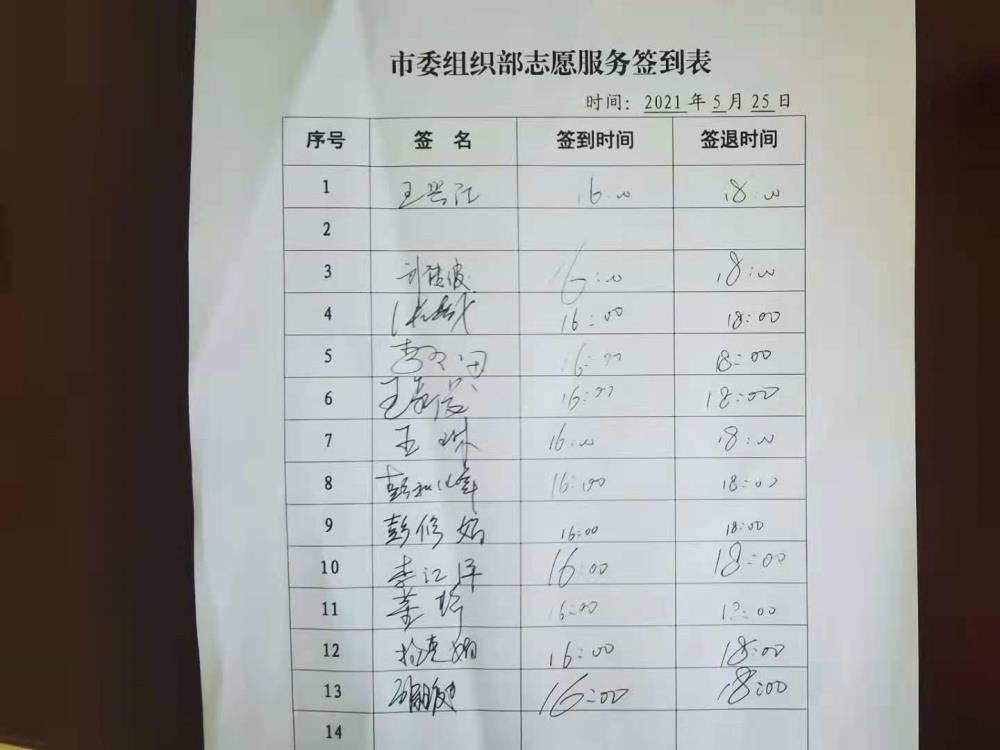 市委组织部志愿服务签到表
时间：2021年5月25日
序号 签 名 签到时间 签退时间
1 王兴江 16:00 18:00
2
3 16:00 18:00
4 16:00 18:00
5 16:00 18:00
6 16:00 18:00
7 王琳 16:00 18:00
8 16:00 18:00
9 彭修娟 16:00 18:00
10 李江洋 16:00 18:00
11 16:00 18:00
12 16:00 18:00
13 16:00 18:00
14